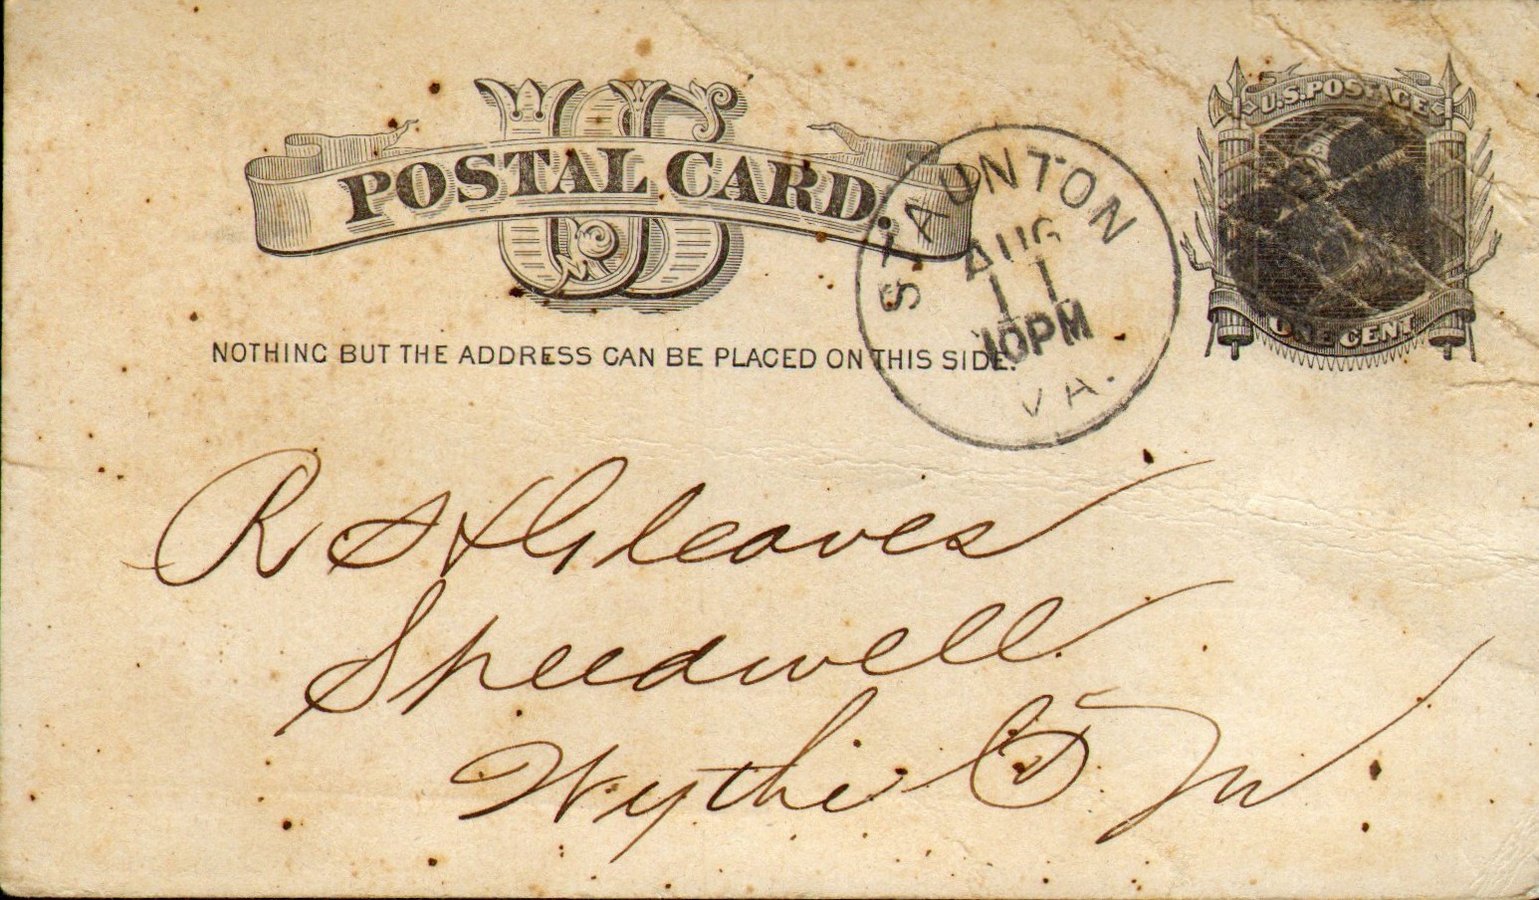 US
POSTAL CARD.
U.S. POSTAGE
ONE CENT
NOTHING BUT THE ADDRESS CAN BE PLACED ON THIS SIDE.
STAUNTON
AUG
11
10PM
VA.
R S Gleaves
Speedwell
Wythe Co